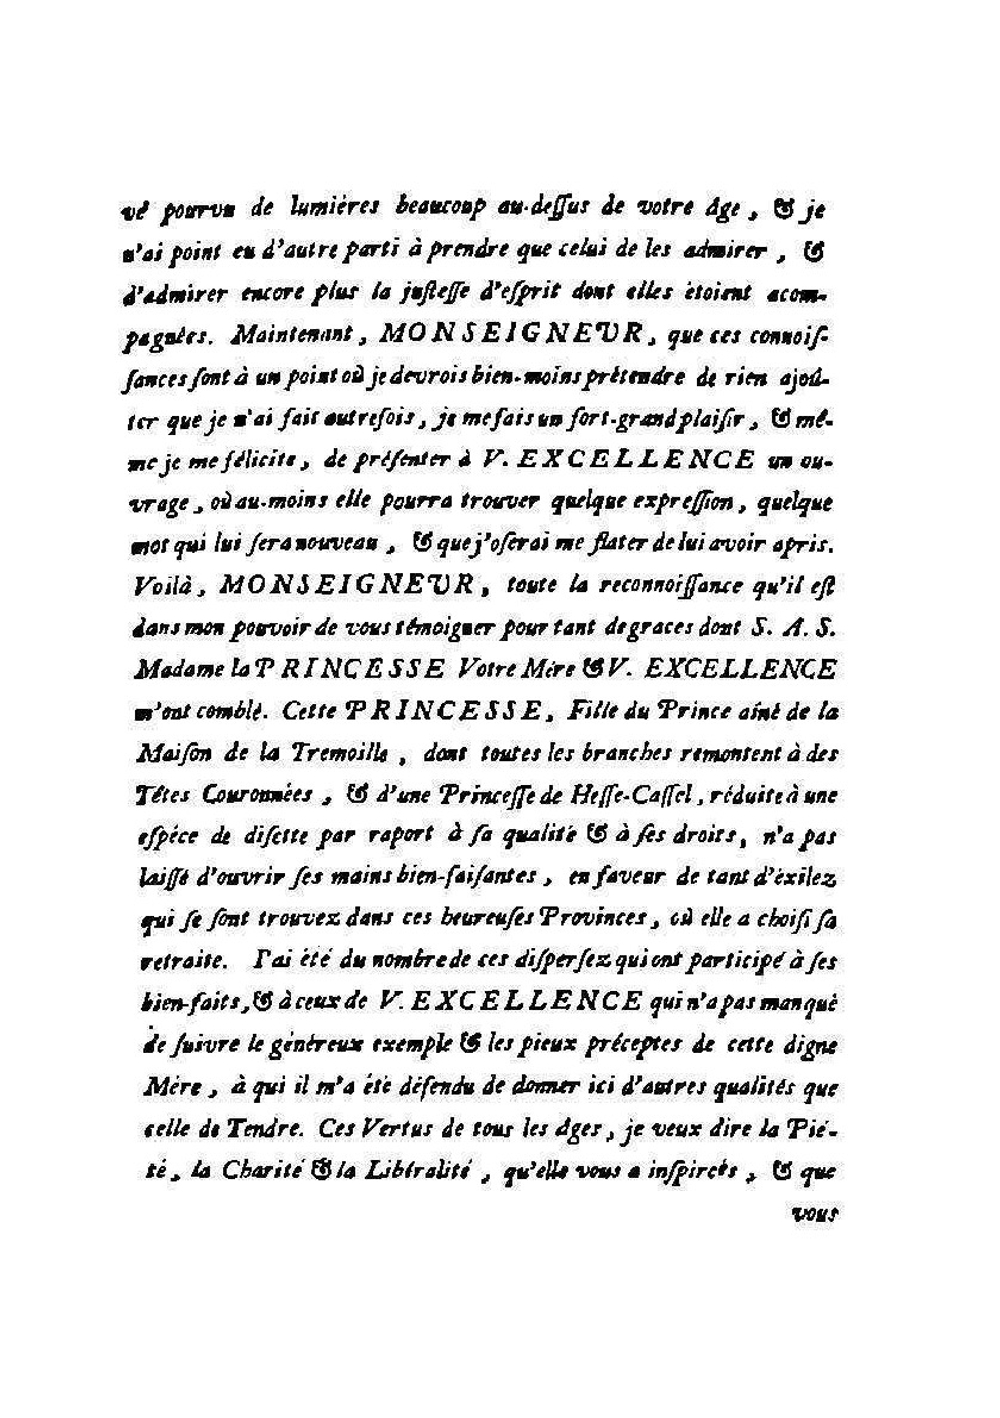 vé pourvu de lumiéres beaucoup au-deſſus de votre âge, & je
n'ai point eu d'autre parti à prendre que celui de les admirer, &
d'admirer encore plus la juſteſſe d'eſprit dont elles étoient acom-
pagnées. Maintenant, MONSEIGNEUR, que ces connoiſ-
ſances ſont à un point où je devrois bien-moins prétendre de rien ajoû-
ter que je n'ai fait autrefois, je me fais un fort-grand plaiſir, & mê-
me je me félicite, de préſenter à V. EXCELLENCE un ou-
vrage, où au-moins elle pourra trouver quelque expreſſion, quelque
mot qui lui ſera nouveau, & que j'oſerai me flater de lui avoir apris.
Voilà, MONSEIGNEUR, toute la reconnoiſſance qu'il eſt
dans mon pouvoir de vous témoigner pour tant de graces dont S. A. S.
Madame la PRINCESSE Votre Mére & V. EXCELLENCE
m'ont comblé. Cette PRINCESSE, Fille du Prince aîné de la
Maiſon de la Tremoille, dont toutes les branches remontent à des
Têtes Couronnées, & d'une Princeſſe de Heſſe-Caſſel, réduite à une
eſpéce de diſette par raport à ſa qualité & à ſes droits, n'a pas
laiſſé d'ouvrir ſes mains bien-faiſantes, en faveur de tant d'éxilez
qui ſe ſont trouvez dans ces heureuſes Provinces, où elle a choiſi ſa
retraite. J'ai été du nombre de ces diſperſez qui ont participé à ſes
bien-faits, & à ceux de V. EXCELLENCE qui n'a pas manqué
de ſuivre le généreux exemple & les pieux préceptes de cette digne
Mére, à qui il m'a été défendu de donner ici d'autres qualités que
celle de Tendre. Ces Vertus de tous les âges, je veux dire la Pié-
té, la Charité & la Libéralité, qu'elle vous a inſpirées, & que
vous